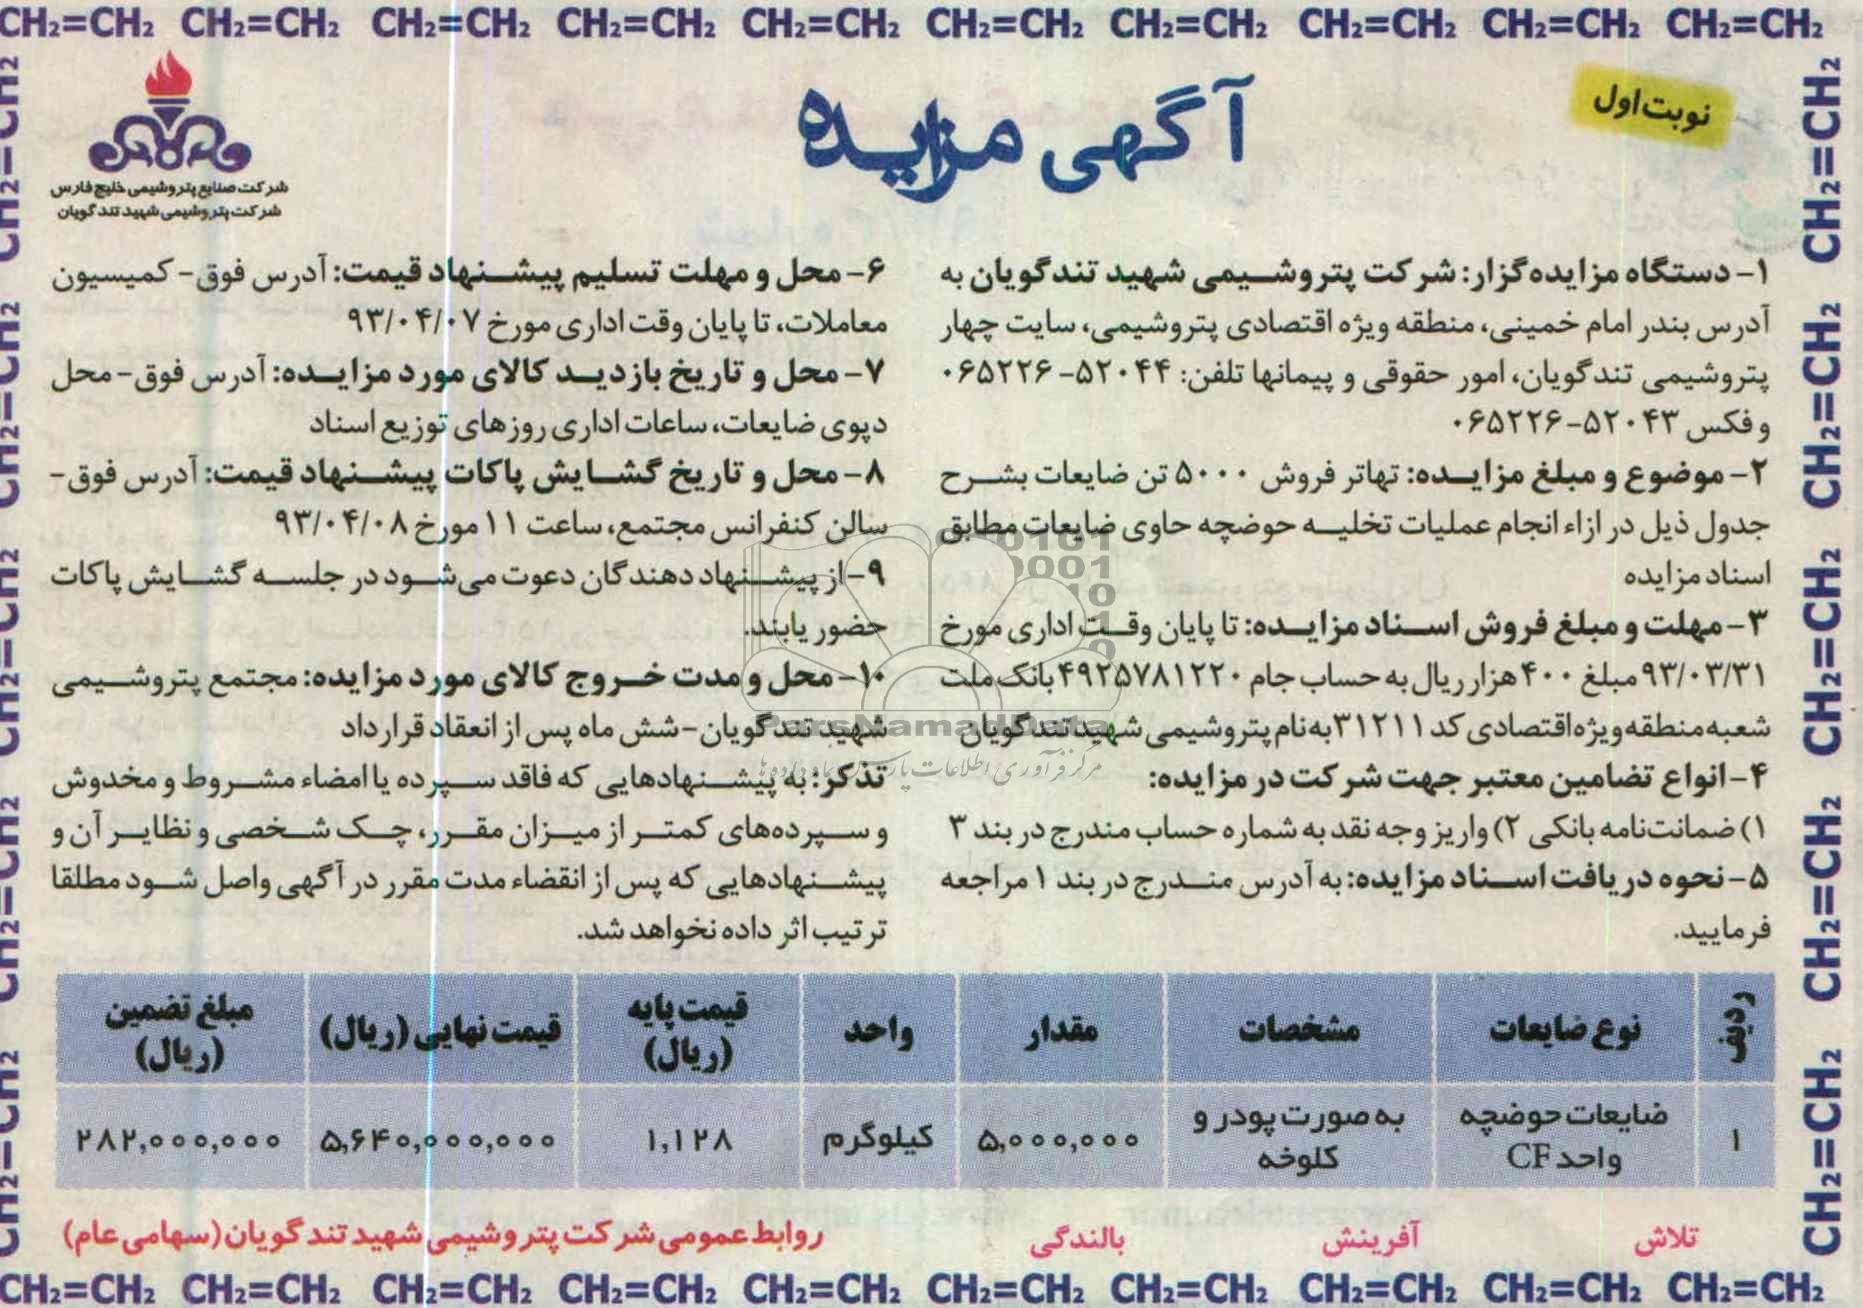 CH2=CH2 CH2=CH2 CH2=CH2 CH2=CH2 CH2=CH2 CH2=CH2 CH2=CH2 CH2=CH2 CH2=CH2 CH2=CH2
نوبت اول
آگهی مزایده
شرکت صنایع پتروشیمی خلیج فارس
شرکت پتروشیمی شهید تندگویان
۱- دستگاه مزایده‌گزار: شرکت پتروشیمی شهید تندگویان به
آدرس بندر امام خمینی، منطقه ویژه اقتصادی پتروشیمی، سایت چهار
پتروشیمی تندگویان، امور حقوقی و پیمانها تلفن: ۵۲۰۴۴-۰۶۵۲۲۶
و فکس ۵۲۰۴۳-۰۶۵۲۲۶
۲- موضوع و مبلغ مزایده: تهاتر فروش ۵۰۰۰ تن ضایعات بشرح
جدول ذیل در ازاء انجام عملیات تخلیه حوضچه حاوی ضایعات مطابق
اسناد مزایده
۳- مهلت و مبلغ فروش اسناد مزایده: تا پایان وقت اداری مورخ
۹۳/۰۳/۳۱ مبلغ ۴۰۰ هزار ریال به حساب جام ۴۹۲۵۷۸۱۲۲۰ بانک ملت
شعبه منطقه ویژه اقتصادی کد ۳۱۲۱۱ به نام پتروشیمی شهید تندگویان
۴- انواع تضامین معتبر جهت شرکت در مزایده:
۱) ضمانت‌نامه بانکی ۲) واریز وجه نقد به شماره حساب مندرج در بند ۳
۵- نحوه دریافت اسناد مزایده: به آدرس مندرج در بند ۱ مراجعه
فرمایید.
۶- محل و مهلت تسلیم پیشنهاد قیمت: آدرس فوق- کمیسیون
معاملات، تا پایان وقت اداری مورخ ۹۳/۰۴/۰۷
۷- محل و تاریخ بازدید کالای مورد مزایده: آدرس فوق- محل
دپوی ضایعات، ساعات اداری روزهای توزیع اسناد
۸- محل و تاریخ گشایش پاکات پیشنهاد قیمت: آدرس فوق-
سالن کنفرانس مجتمع، ساعت ۱۱ مورخ ۹۳/۰۴/۰۸
۹- از پیشنهاد دهندگان دعوت می‌شود در جلسه گشایش پاکات
حضور یابند.
۱۰- محل و مدت خروج کالای مورد مزایده: مجتمع پتروشیمی
شهید تندگویان- شش ماه پس از انعقاد قرارداد
تذکر: به پیشنهادهایی که فاقد سپرده یا امضاء مشروط و مخدوش
و سپرده‌های کمتر از میزان مقرر، چک شخصی و نظایر آن و
پیشنهادهایی که پس از انقضاء مدت مقرر در آگهی واصل شود مطلقا
ترتیب اثر داده نخواهد شد.
ParsNamadData
ردیف نوع ضایعات مشخصات مقدار واحد قیمت پایه (ریال) قیمت نهایی (ریال) مبلغ تضمین (ریال)
۱ ضایعات حوضچه واحد CF به صورت پودر و کلوخه ۵,۰۰۰,۰۰۰ کیلوگرم ۱,۱۲۸ ۵,۶۴۰,۰۰۰,۰۰۰ ۲۸۲,۰۰۰,۰۰۰
تلاش آفرینش بالندگی روابط عمومی شرکت پتروشیمی شهید تندگویان (سهامی عام)
CH2=CH2 CH2=CH2 CH2=CH2 CH2=CH2 CH2=CH2 CH2=CH2 CH2=CH2 CH2=CH2 CH2=CH2 CH2=CH2
CH2=CH2 CH2=CH2 CH2=CH2 CH2=CH2 CH2=CH2
CH2=CH2 CH2=CH2 CH2=CH2 CH2=CH2 CH2=CH2